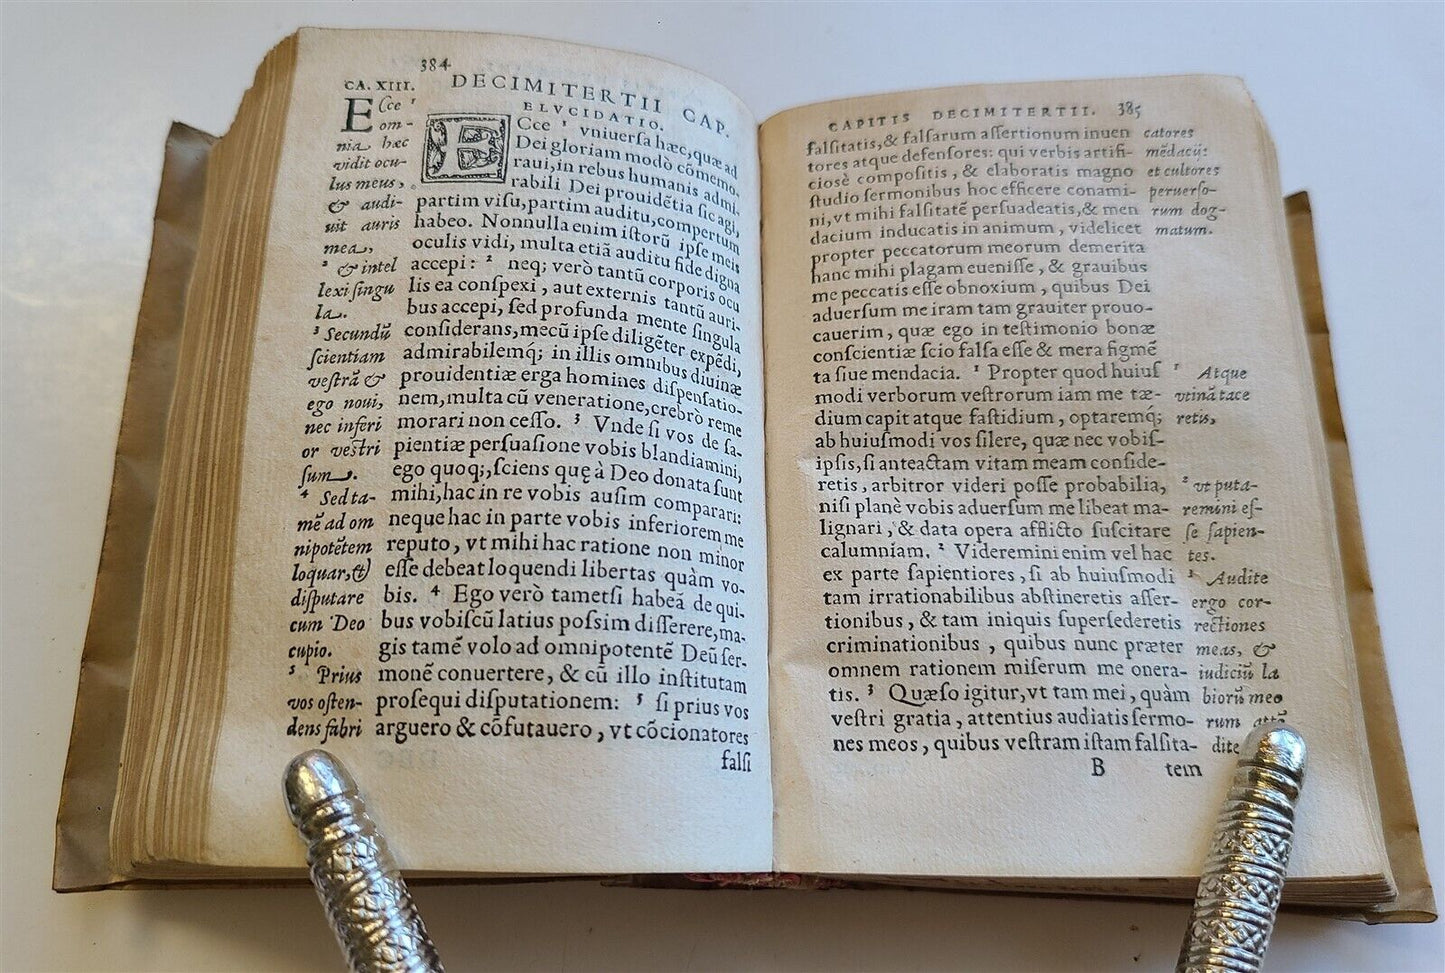 384
DECIMITERTII CAP.
ELVCIDATIO.
CA. XIII.
Ecce ¹
om-
nia hæc
vidit ocu-
lus meus,
& audi-
uit auris
mea,
² & intel
lexi singu
la.
³ Secundũ
scientiam
vestrã &
ego noui,
nec inferi
or vestri
sum.
⁴ Sed ta-
mẽ ad om
nipotẽtem
loquar, &
disputare
cum Deo
cupio.
⁵ Prius
vos osten-
dens fabri
ECce ¹ vniuersa hæc, quæ ad
Dei gloriam modò cõmemo-
raui, in rebus humanis admi-
rabili Dei prouidẽtia sic agi,
partim visu, partim auditu, compertum
habeo. Nonnulla enim istorũ ipse meis
oculis vidi, multa etiã auditu fide digna
accepi: ² neq; verò tantũ corporis ocu
lis ea conspexi, aut externis tantũ auri-
bus accepi, sed profunda mente singula
considerans, mecũ ipse diligẽter expẽdi,
admirabilemq́; in illis omnibus diuinæ
prouidentiæ erga homines dispensatio-
nem, multa cũ veneratione, crebrò reme
morari non cesso. ³ Vnde si vos de sa-
pientiæ persuasione vobis blandiamini,
ego quoq;, sciens quę à Deo donata sunt
mihi, hac in re vobis ausim comparari:
neque hac in parte vobis inferiorem me
reputo, vt mihi hac ratione non minor
esse debeat loquendi libertas quàm vo-
bis. ⁴ Ego verò tametsi habeã de qui-
bus vobiscũ latius possim disserere, ma-
gis tamẽ volo ad omnipotentẽ Deũ ser-
monẽ conuertere, & cũ illo institutam
prosequi disputationem: ⁵ si prius vos
arguero & cõfutauero, vt cõcionatores
falsi
CAPITIS DECIMITERTII. 385
falsitatis, & falsarum assertionum inuen
tores atque defensores: qui verbis artifi-
ciosè compositis, & elaboratis magno
studio sermonibus hoc efficere conami-
ni, vt mihi falsitatẽ persuadeatis, & men
dacium inducatis in animum, videlicet
propter peccatorum meorum demerita
hanc mihi plagam euenisse, & grauibus
me peccatis esse obnoxium, quibus Dei
aduersum me iram tam grauiter prouo-
cauerim, quæ ego in testimonio bonæ
conscientiæ scio falsa esse & mera figmẽ
ta siue mendacia. ¹ Propter quod huius
modi verborum vestrorum iam me tæ-
dium capit atque fastidium, optaremq́;
ab huiusmodi vos silere, quæ nec vobis-
ipsis, si anteactam vitam meam conside-
retis, arbitror videri posse probabilia,
nisi planè vobis aduersum me libeat ma-
lignari, & data opera afflicto suscitare
calumniam. ² Videremini enim vel hac
ex parte sapientiores, si ab huiusmodi
tam irrationabilibus abstineretis asser-
tionibus, & tam iniquis supersederetis
criminationibus, quibus nunc præter
omnem rationem miserum me onera-
tis. ³ Quæso igitur, vt tam mei, quàm
vestri gratia, attentius audiatis sermo-
nes meos, quibus vestram istam falsita-
B tem
catores
mẽdacij:
et cultores
peruerso-
rum dog-
matum.
¹ Atque
vtinã tace
retis,
² vt puta-
remini es-
se sapien-
tes.
³ Audite
ergo cor-
rectiones
meas, &
iudiciũ la
biorũ meo
rum attẽ
dite